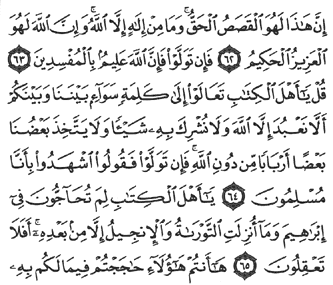 إِنَّ هَٰذَا لَهُوَ ٱلْقَصَصُ ٱلْحَقُّ ۚ وَمَا مِنْ إِلَٰهٍ إِلَّا ٱللَّهُ ۚ وَإِنَّ ٱللَّهَ لَهُوَ
ٱلْعَزِيزُ ٱلْحَكِيمُ ٦٢ فَإِن تَوَلَّوْا۟ فَإِنَّ ٱللَّهَ عَلِيمٌۢ بِٱلْمُفْسِدِينَ ٦٣
قُلْ يَٰٓأَهْلَ ٱلْكِتَٰبِ تَعَالَوْا۟ إِلَىٰ كَلِمَةٍ سَوَآءٍۭ بَيْنَنَا وَبَيْنَكُمْ
أَلَّا نَعْبُدَ إِلَّا ٱللَّهَ وَلَا نُشْرِكَ بِهِۦ شَيْـًٔا وَلَا يَتَّخِذَ بَعْضُنَا
بَعْضًا أَرْبَابًا مِّن دُونِ ٱللَّهِ ۚ فَإِن تَوَلَّوْا۟ فَقُولُوا۟ ٱشْهَدُوا۟ بِأَنَّا
مُسْلِمُونَ ٦٤ يَٰٓأَهْلَ ٱلْكِتَٰبِ لِمَ تُحَآجُّونَ فِىٓ
إِبْرَٰهِيمَ وَمَآ أُنزِلَتِ ٱلتَّوْرَىٰةُ وَٱلْإِنجِيلُ إِلَّا مِنۢ بَعْدِهِۦٓ ۚ أَفَلَا
تَعْقِلُونَ ٦٥ هَٰٓأَنتُمْ هَٰٓؤُلَآءِ حَٰجَجْتُمْ فِيمَا لَكُم بِهِۦ